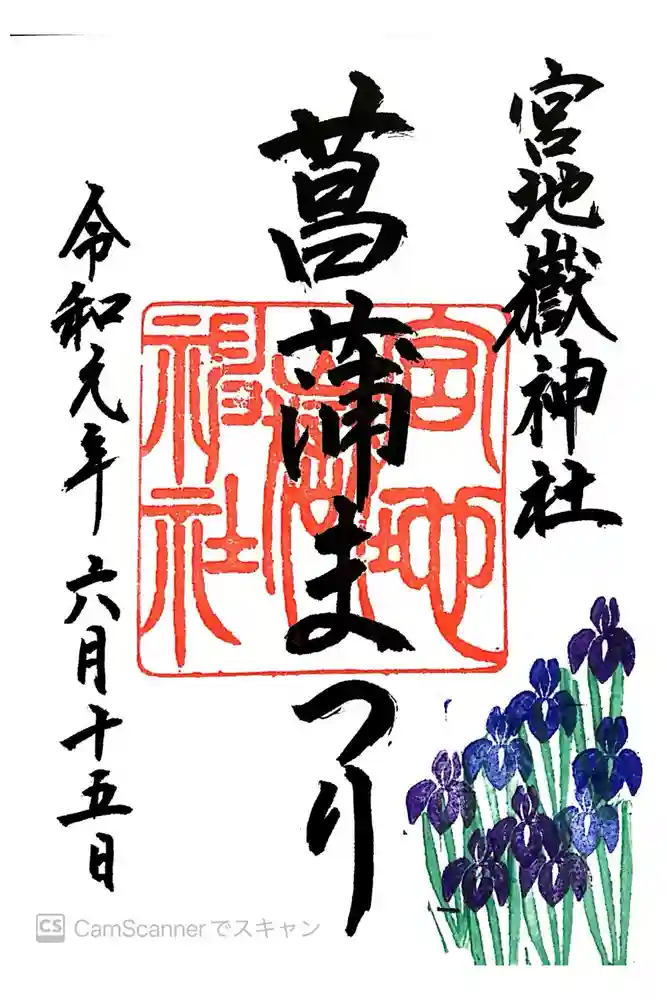 宮地嶽神社
菖蒲まつり
宮地嶽神社
令和元年六月十五日
CS CamScannerでスキャン